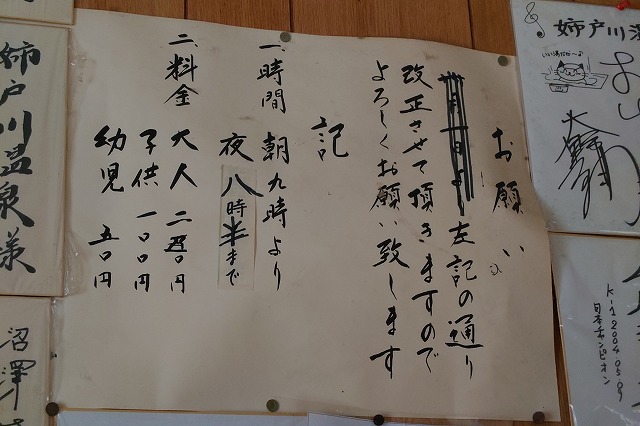 お願い
左記の通り
改正させて頂きますので
よろしくお願い致します
記
一、時間 朝九時より
夜八時半まで
二、料金 大人 二五〇円
子供 一〇〇円
幼児 五〇円
姉戸川温泉様
沼澤
姉戸川温
K-1 2004 05.09
日本チャンピオン